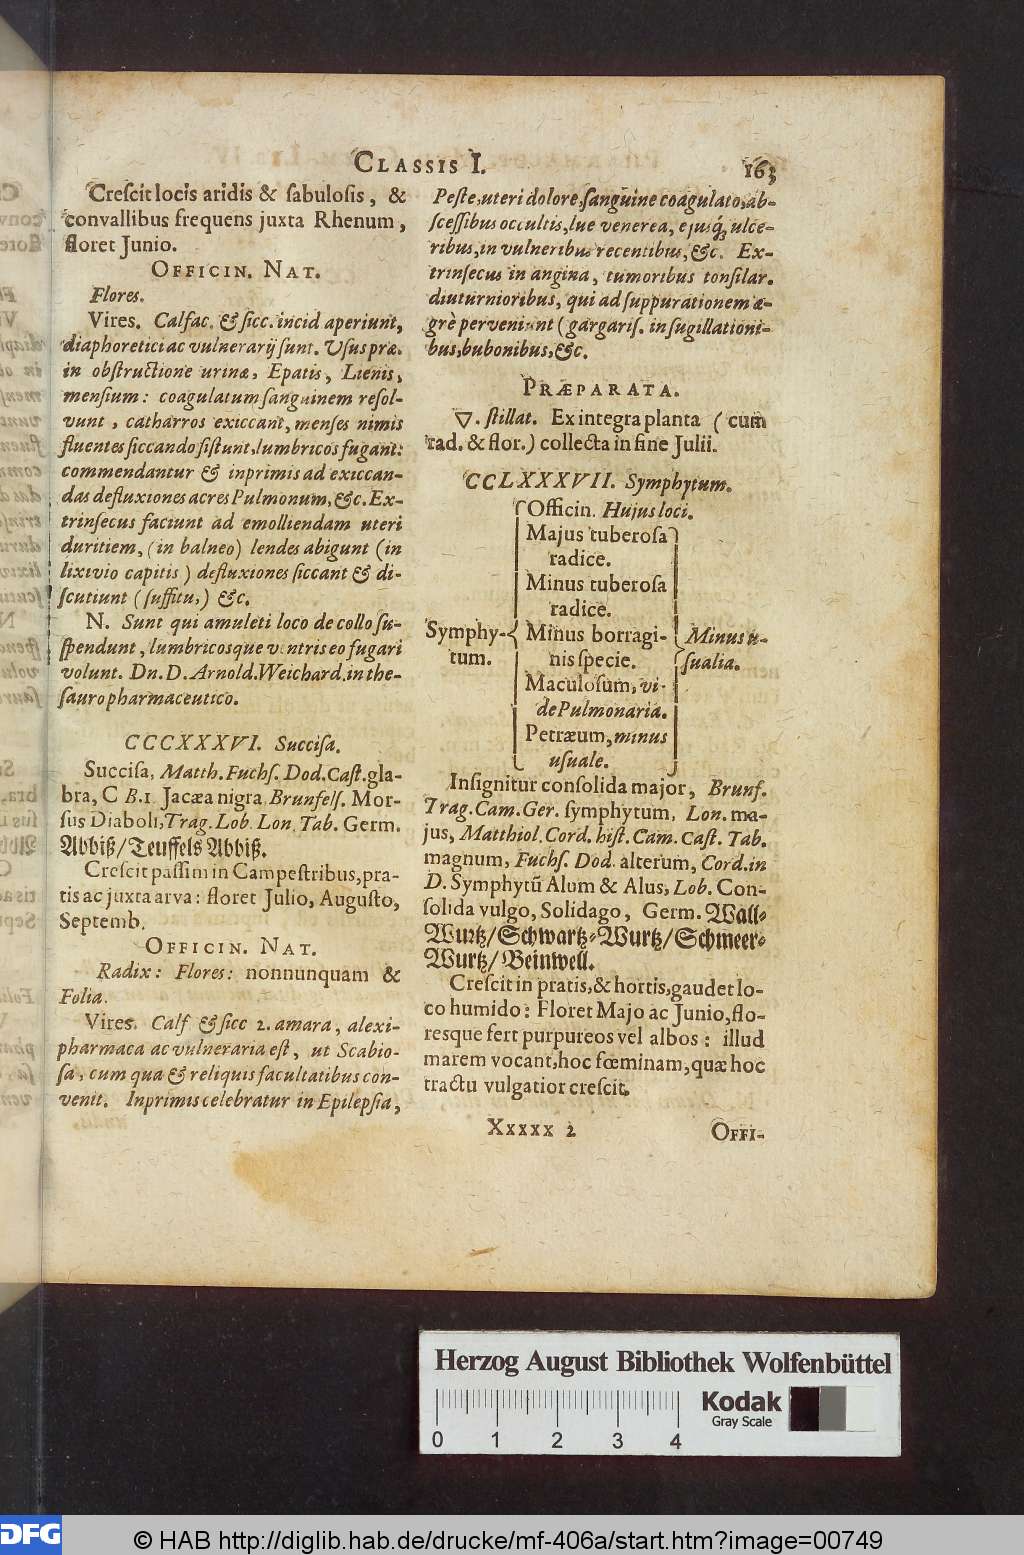 CLASSIS I. 163
Creſcit locis aridis & ſabuloſis, &
convallibus frequens juxta Rhenum,
floret Junio.
OFFICIN. NAT.
Flores.
Vires. Calfac. & ſicc. incid aperiunt,
diaphoretici ac vulnerarij ſunt. Uſus præ.
in obſtructione urinæ, Epatis, Lienis,
menſium: coagulatum ſanguinem reſol-
vunt, catharros exiccant, menſes nimis
fluentes ſiccando ſiſtunt, lumbricos fugant:
commendantur & inprimis ad exiccan-
das defluxiones acres Pulmonum, &c. Ex-
trinſecus faciunt ad emolliendam uteri
duritiem, (in balneo) lendes abigunt (in
lixivio capitis) defluxiones ſiccant & di-
ſcutiunt (ſuffitu,) &c.
N. Sunt qui amuleti loco de collo ſu-
ſpendunt, lumbricosque ventris eo fugari
volunt. Dn. D. Arnold. Weichard. in the-
ſauro pharmaceutico.
CCCXXXVI. Succiſa.
Succiſa, Matth. Fuchſ. Dod. Caſt. gla-
bra, C B.1. Jacæa nigra Brunfelſ. Mor-
ſus Diaboli, Trag. Lob. Lon. Tab. Germ.
Abbiß/ Teuffels Abbiß.
Creſcit paſſim in Campeſtribus, pra-
tis ac juxta arva: floret Julio, Auguſto,
Septemb.
OFFICIN. NAT.
Radix: Flores: nonnunquam &
Folia.
Vires. Calf & ſicc 2. amara, alexi-
pharmaca ac vulneraria eſt, ut Scabio-
ſa, cum qua & reliquis facultatibus con-
venit. Inprimis celebratur in Epilepſia,
Peſte, uteri dolore, ſanguine coagulato, ab-
ſceſſibus occultis, lue venerea, ejusq́; ulce-
ribus, in vulneribus recentibus, &c. Ex-
trinſecus in angina, tumoribus tonſilar.
diuturnioribus, qui ad ſuppurationem æ-
grè perveniunt (gargariſ. in ſugillationi-
bus, bubonibus, &c.
PRÆPARATA.
▽. ſtillat. Ex integra planta (cum
rad. & flor.) collecta in fine Julii.
CCLXXXVII. Symphytum.
Officin. Hujus loci.
Majus tuberoſa
radice.
Minus tuberoſa
radice.
Symphy- Minus borragi- Minus u-
tum. nis ſpecie. ſualia.
Maculoſum, vi-
de Pulmonaria.
Petræum, minus
uſuale.
Inſignitur conſolida major, Brunf.
Trag. Cam. Ger. ſymphytum, Lon. ma-
jus, Matthiol. Cord. hiſt. Cam. Caſt. Tab.
magnum, Fuchſ. Dod. alterum, Cord. in
D. Symphytū Alum & Alus, Lob. Con-
ſolida vulgo, Solidago, Germ. Wall-
Wurtz/ Schwartz-Wurtz/ Schmeer-
Wurtz/ Beinwell.
Creſcit in pratis, & hortis, gaudet lo-
co humido: Floret Majo ac Junio, flo-
resque fert purpureos vel albos: illud
marem vocant, hoc fœminam, quæ hoc
tractu vulgatior creſcit.
Xxxxx 2 OFFI-
Herzog August Bibliothek Wolfenbüttel
Kodak
Gray Scale
0 1 2 3 4
DFG
© HAB http://diglib.hab.de/drucke/mf-406a/start.htm?image=00749